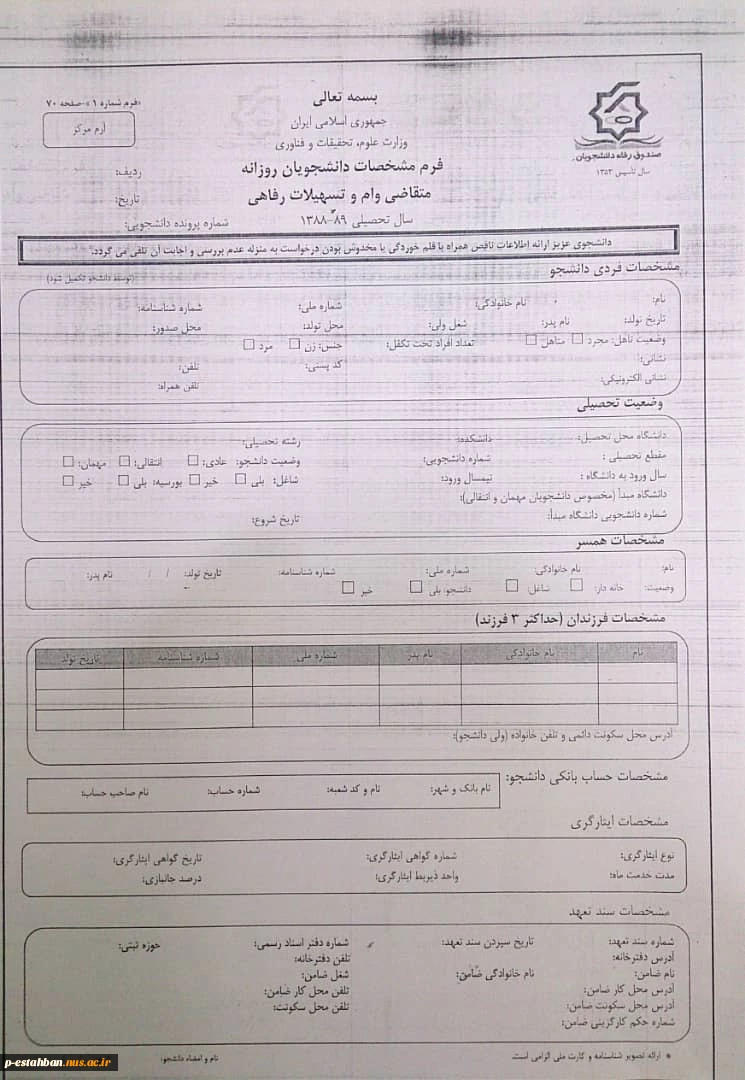 بسمه تعالی
«فرم شماره ۱»-صفحه ۷۰
جمهوری اسلامی ایران
آرم مرکز
وزارت علوم، تحقیقات و فناوری
صندوق رفاه دانشجویان
سال تاسیس ۱۳۵۳
فرم مشخصات دانشجویان روزانه
ردیف:
متقاضی وام و تسهیلات رفاهی
تاریخ:
سال تحصیلی ۸۹-۱۳۸۸
شماره پرونده دانشجویی:
دانشجوی عزیز ارائه اطلاعات ناقص همراه با قلم خوردگی یا مخدوش بودن درخواست به منزله عدم بررسی و اجابت آن تلقی می گردد.
مشخصات فردی دانشجو
(توسط دانشجو تکمیل شود)
نام: نام خانوادگی: شماره ملی: شماره شناسنامه:
تاریخ تولد: نام پدر: شغل ولی: محل تولد: محل صدور:
وضعیت تاهل: مجرد متاهل تعداد افراد تحت تکفل: جنس: زن مرد
نشانی: کد پستی: تلفن:
نشانی الکترونیکی: تلفن همراه:
وضعیت تحصیلی
دانشگاه محل تحصیل: دانشکده: رشته تحصیلی:
مقطع تحصیلی : شماره دانشجویی: وضعیت دانشجو: عادی: انتقالی: مهمان:
سال ورود به دانشگاه : نیمسال ورود: شاغل: بلی خیر بورسیه: بلی خیر
دانشگاه مبدأ (مخصوص دانشجویان مهمان و انتقالی):
شماره دانشجویی دانشگاه مبدأ: تاریخ شروع:
مشخصات همسر
نام: نام خانوادگی: شماره ملی: شماره شناسنامه: تاریخ تولد: / / نام پدر:
وضعیت: خانه دار: شاغل: دانشجو: بلی خیر
مشخصات فرزندان (حداکثر ۳ فرزند)
نام نام خانوادگی نام پدر شماره ملی شماره شناسنامه تاریخ تولد
آدرس محل سکونت دائمی و تلفن خانواده (ولی دانشجو):
مشخصات حساب بانکی دانشجو:
نام بانک و شهر: نام و کد شعبه: شماره حساب: نام صاحب حساب:
مشخصات ایثارگری
نوع ایثارگری: شماره گواهی ایثارگری: تاریخ گواهی ایثارگری:
مدت خدمت ماه: واحد ذیربط ایثارگری: درصد جانبازی:
مشخصات سند تعهد
شماره سند تعهد: تاریخ سپردن سند تعهد: شماره دفتر اسناد رسمی: حوزه ثبتی:
آدرس دفترخانه: تلفن دفترخانه:
نام ضامن: نام خانوادگی ضامن: شغل ضامن:
آدرس محل کار ضامن: تلفن محل کار ضامن:
آدرس محل سکونت ضامن: تلفن محل سکونت:
شماره حکم کارگزینی ضامن:
* ارائه تصویر شناسنامه و کارت ملی الزامی است. نام و امضاء دانشجو:
p-estahban.nus.ac.ir